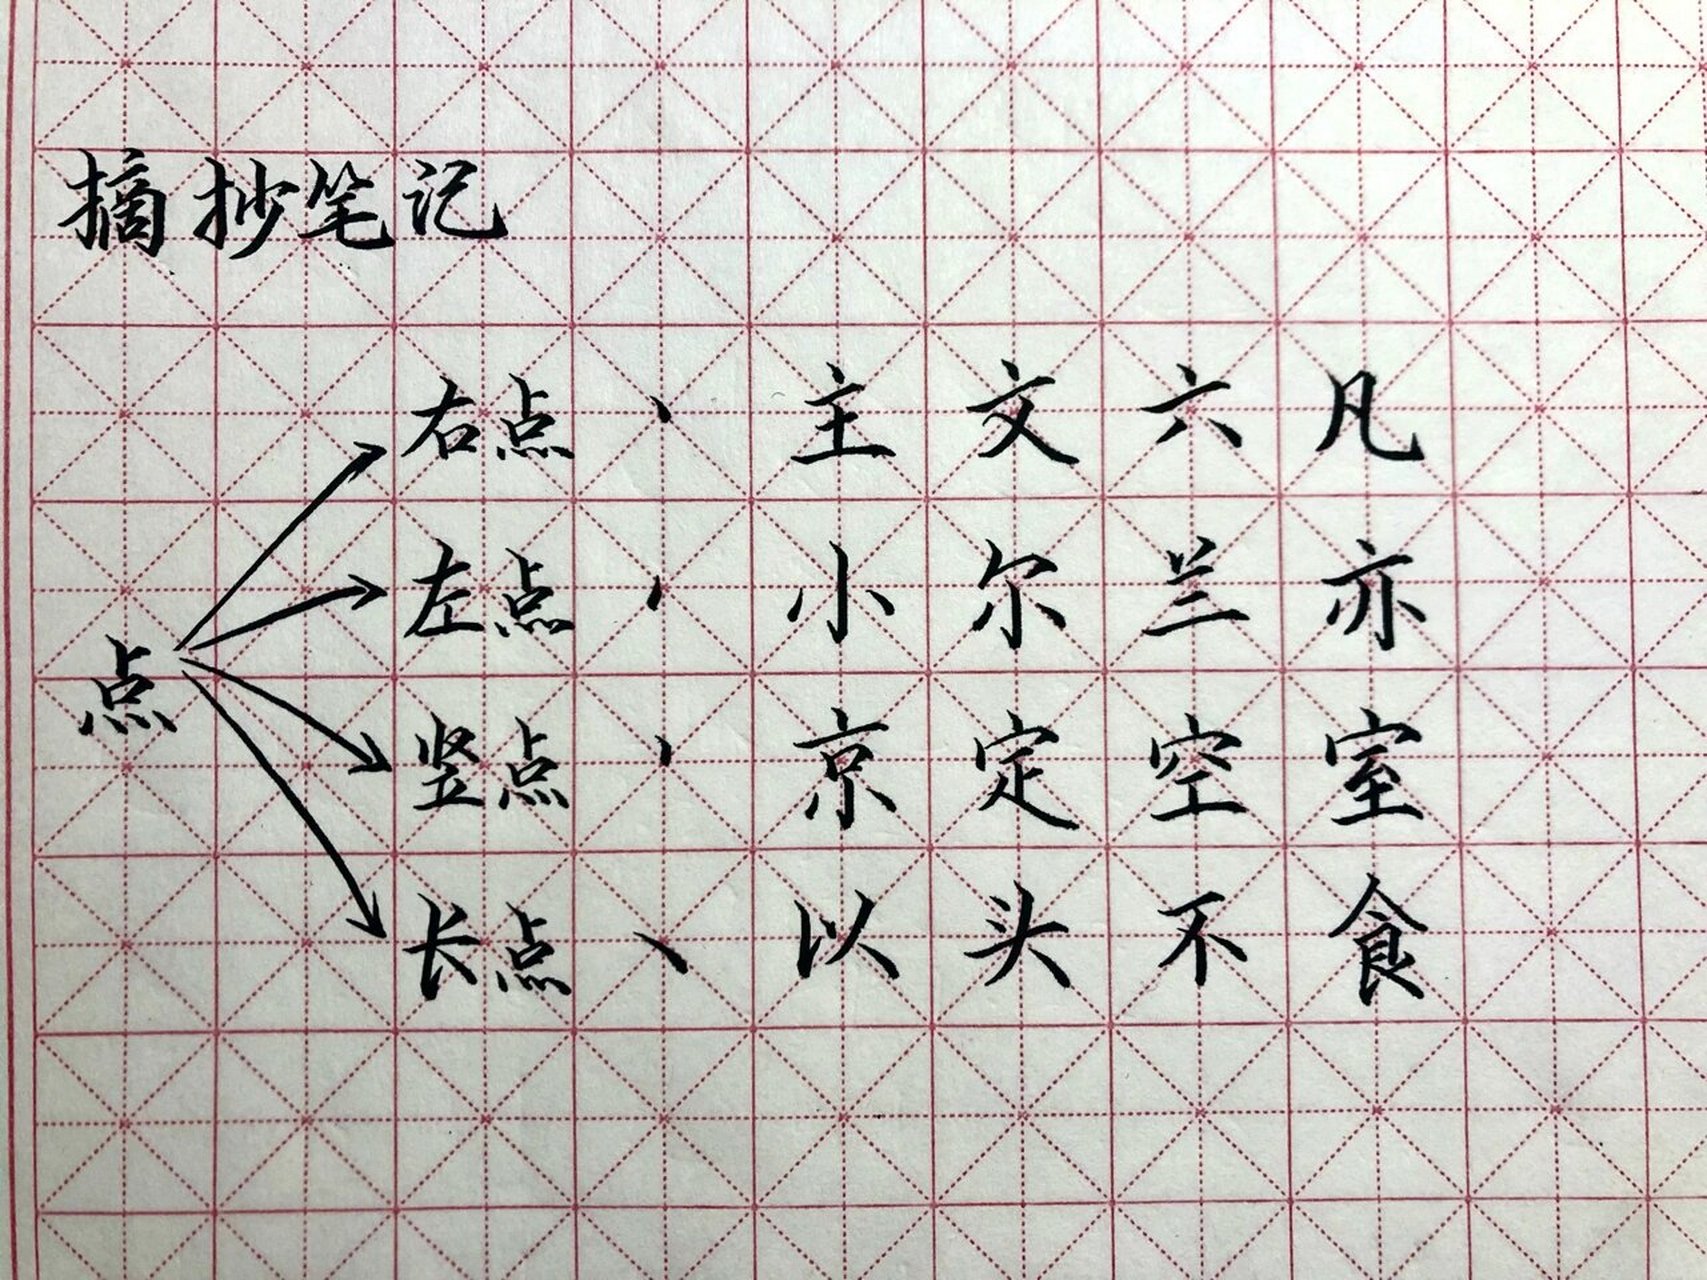 摘抄笔记
右点 丶 主 文 六 凡
左点 丶 小 尔 兰 亦
点
竖点 丶 京 定 空 室
长点 丶 以 头 不 食